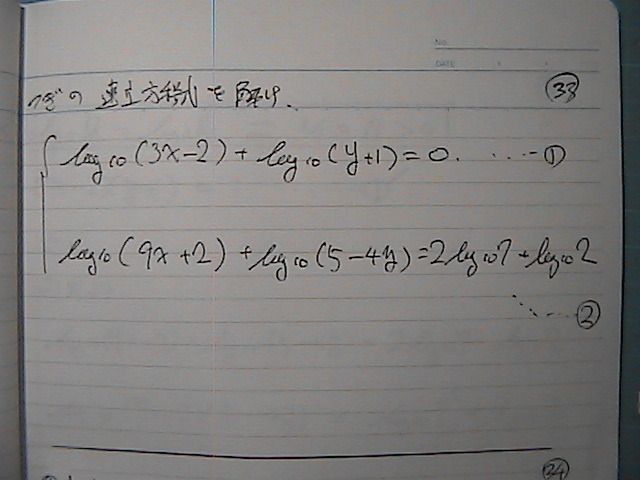 NO.
DATE
つぎの 連立方程式を解け. ㉝
log10(3x-2) + log10(y+1) = 0. ....-①
log10(9x+2) + log10(5-4y) = 2log107 + log102
.....-②
㉞